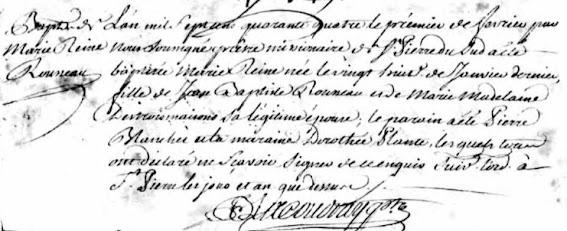 Bapt. de L'an mil sept cens quarante quatre le premier de fevrier par
Marie Reine nous soussigné prêtre missionaire de St Pierre du Sud a été
Rouneau baptisée Marie Reine née le vingt huit de Janvier dernier
fille de Jean Baptiste Rouneau et de Marie Madelaine
sa légitime épouse; le parain a été Pierre
Blanchet et la maraine Dorothée Plante, lesquels
ont declaré ne sçavoir signer de ce enquis suiv. lord. à
St Pierre les jour et an que dessus